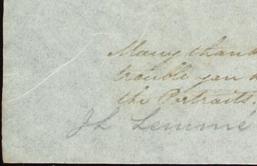 Many thank
trouble you
the Portraits.
Jh Lemmé